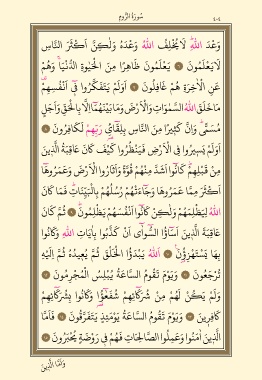 سُورَةُ الرُّومِ
٤٠٤
وَعْدَ اللّٰهِ لَا يُخْلِفُ اللّٰهُ وَعْدَهُ وَلٰكِنَّ اَكْثَرَ النَّاسِ
لَا يَعْلَمُونَ يَعْلَمُونَ ظَاهِرًا مِنَ الْحَيٰوةِ الدُّنْيَا وَهُمْ
عَنِ الْاٰخِرَةِ هُمْ غَافِلُونَ اَوَلَمْ يَتَفَكَّرُوا فٖٓى اَنْفُسِهِمْ
مَا خَلَقَ اللّٰهُ السَّمٰوَاتِ وَالْاَرْضَ وَمَا بَيْنَهُمَٓا اِلَّا بِالْحَقِّ وَاَجَلٍ
مُسَمًّى وَاِنَّ كَثٖيرًا مِنَ النَّاسِ بِلِقَٓائِ رَبِّهِمْ لَكَافِرُونَ
اَوَلَمْ يَسٖيرُوا فِى الْاَرْضِ فَيَنْظُرُوا كَيْفَ كَانَ عَاقِبَةُ الَّذٖينَ
مِنْ قَبْلِهِمْ كَانُٓوا اَشَدَّ مِنْهُمْ قُوَّةً وَاَثَارُوا الْاَرْضَ وَعَمَرُوهَٓا
اَكْثَرَ مِمَّا عَمَرُوهَا وَجَٓاءَتْهُمْ رُسُلُهُمْ بِالْبَيِّنَاتِ فَمَا كَانَ
اللّٰهُ لِيَظْلِمَهُمْ وَلٰكِنْ كَانُٓوا اَنْفُسَهُمْ يَظْلِمُونَ ثُمَّ كَانَ
عَاقِبَةَ الَّذٖينَ اَسَٓاؤُا السُّٓوآٰى اَنْ كَذَّبُوا بِاٰيَاتِ اللّٰهِ وَكَانُوا
بِهَا يَسْتَهْزِؤُنَ اَللّٰهُ يَبْدَؤُا الْخَلْقَ ثُمَّ يُعٖيدُهُ ثُمَّ اِلَيْهِ
تُرْجَعُونَ وَيَوْمَ تَقُومُ السَّاعَةُ يُبْلِسُ الْمُجْرِمُونَ
وَلَمْ يَكُنْ لَهُمْ مِنْ شُرَكَٓائِهِمْ شُفَعٰٓؤُا وَكَانُوا بِشُرَكَٓائِهِمْ
كَافِرٖينَ وَيَوْمَ تَقُومُ السَّاعَةُ يَوْمَئِذٍ يَتَفَرَّقُونَ فَاَمَّا
الَّذٖينَ اٰمَنُوا وَعَمِلُوا الصَّالِحَاتِ فَهُمْ فٖى رَوْضَةٍ يُحْبَرُونَ
وَاَمَّا الَّذٖينَ